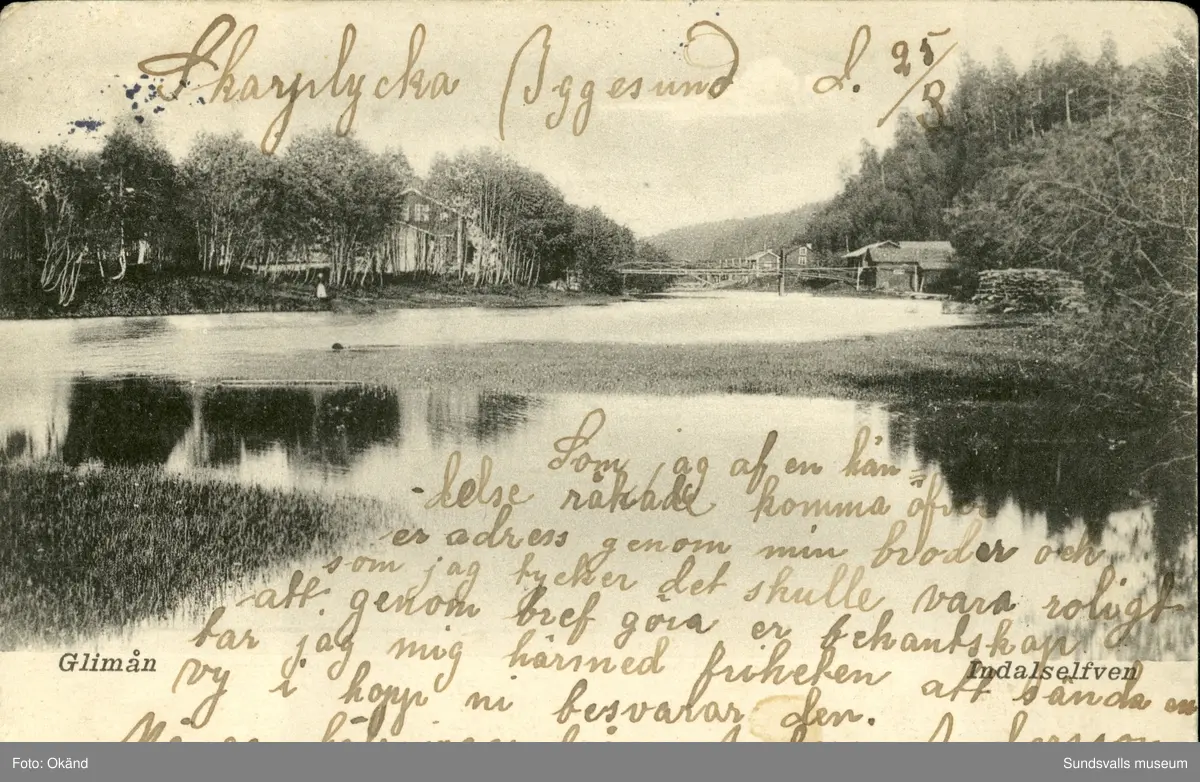 Skarplycka Iggesund d. 25/3
Som jag af en hän=
delse råkade komma öfver
er adress genom min broder och
som jag tycker det skulle vara roligt
att genom bref göra er bekantskap
tar jag mig härmed friheten att sända en
Glimån
Indalselfven
vy i hopp ni besvarar den.
Många hälsningar
Andersson
Foto: Okänd
Sundsvalls museum